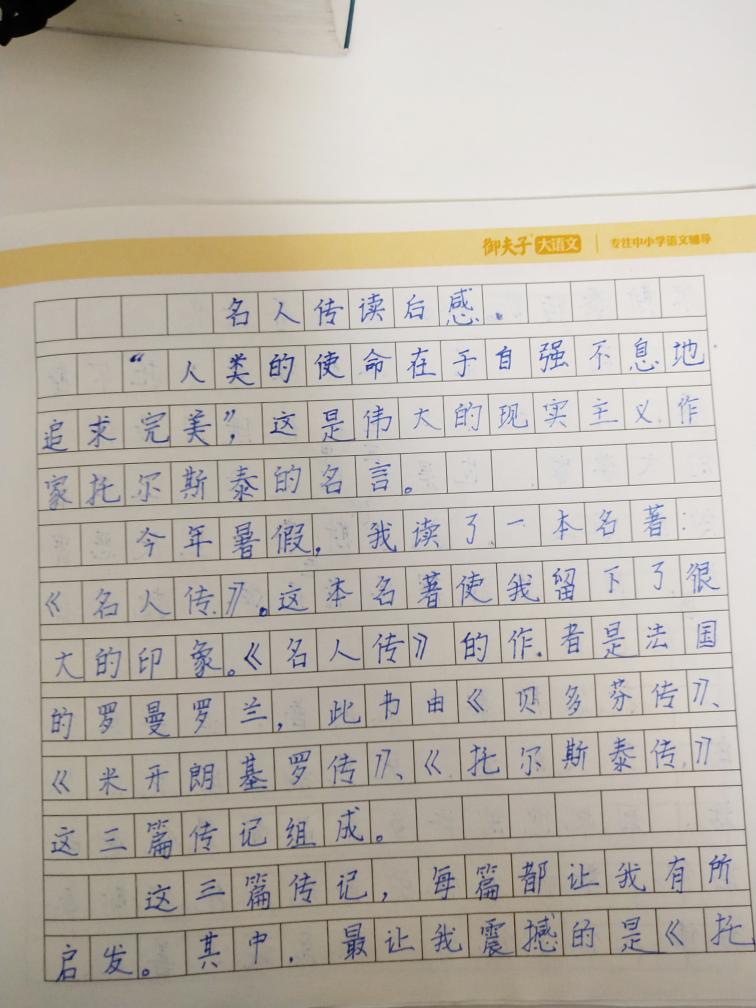 御夫子 大语文 | 专注中小学语文辅导
名人传读后感.
“人类的使命在于自强不息地
追求完美”,这是伟大的现实主义作
家托尔斯泰的名言。
今年暑假,我读了一本名著:
《名人传》。这本名著使我留下了很
大的印象。《名人传》的作者是法国
的罗曼罗兰,此书由《贝多芬传》、
《米开朗基罗传》、《托尔斯泰传》
这三篇传记组成。
这三篇传记,每篇都让我有所
启发。其中.最让我震撼的是《托